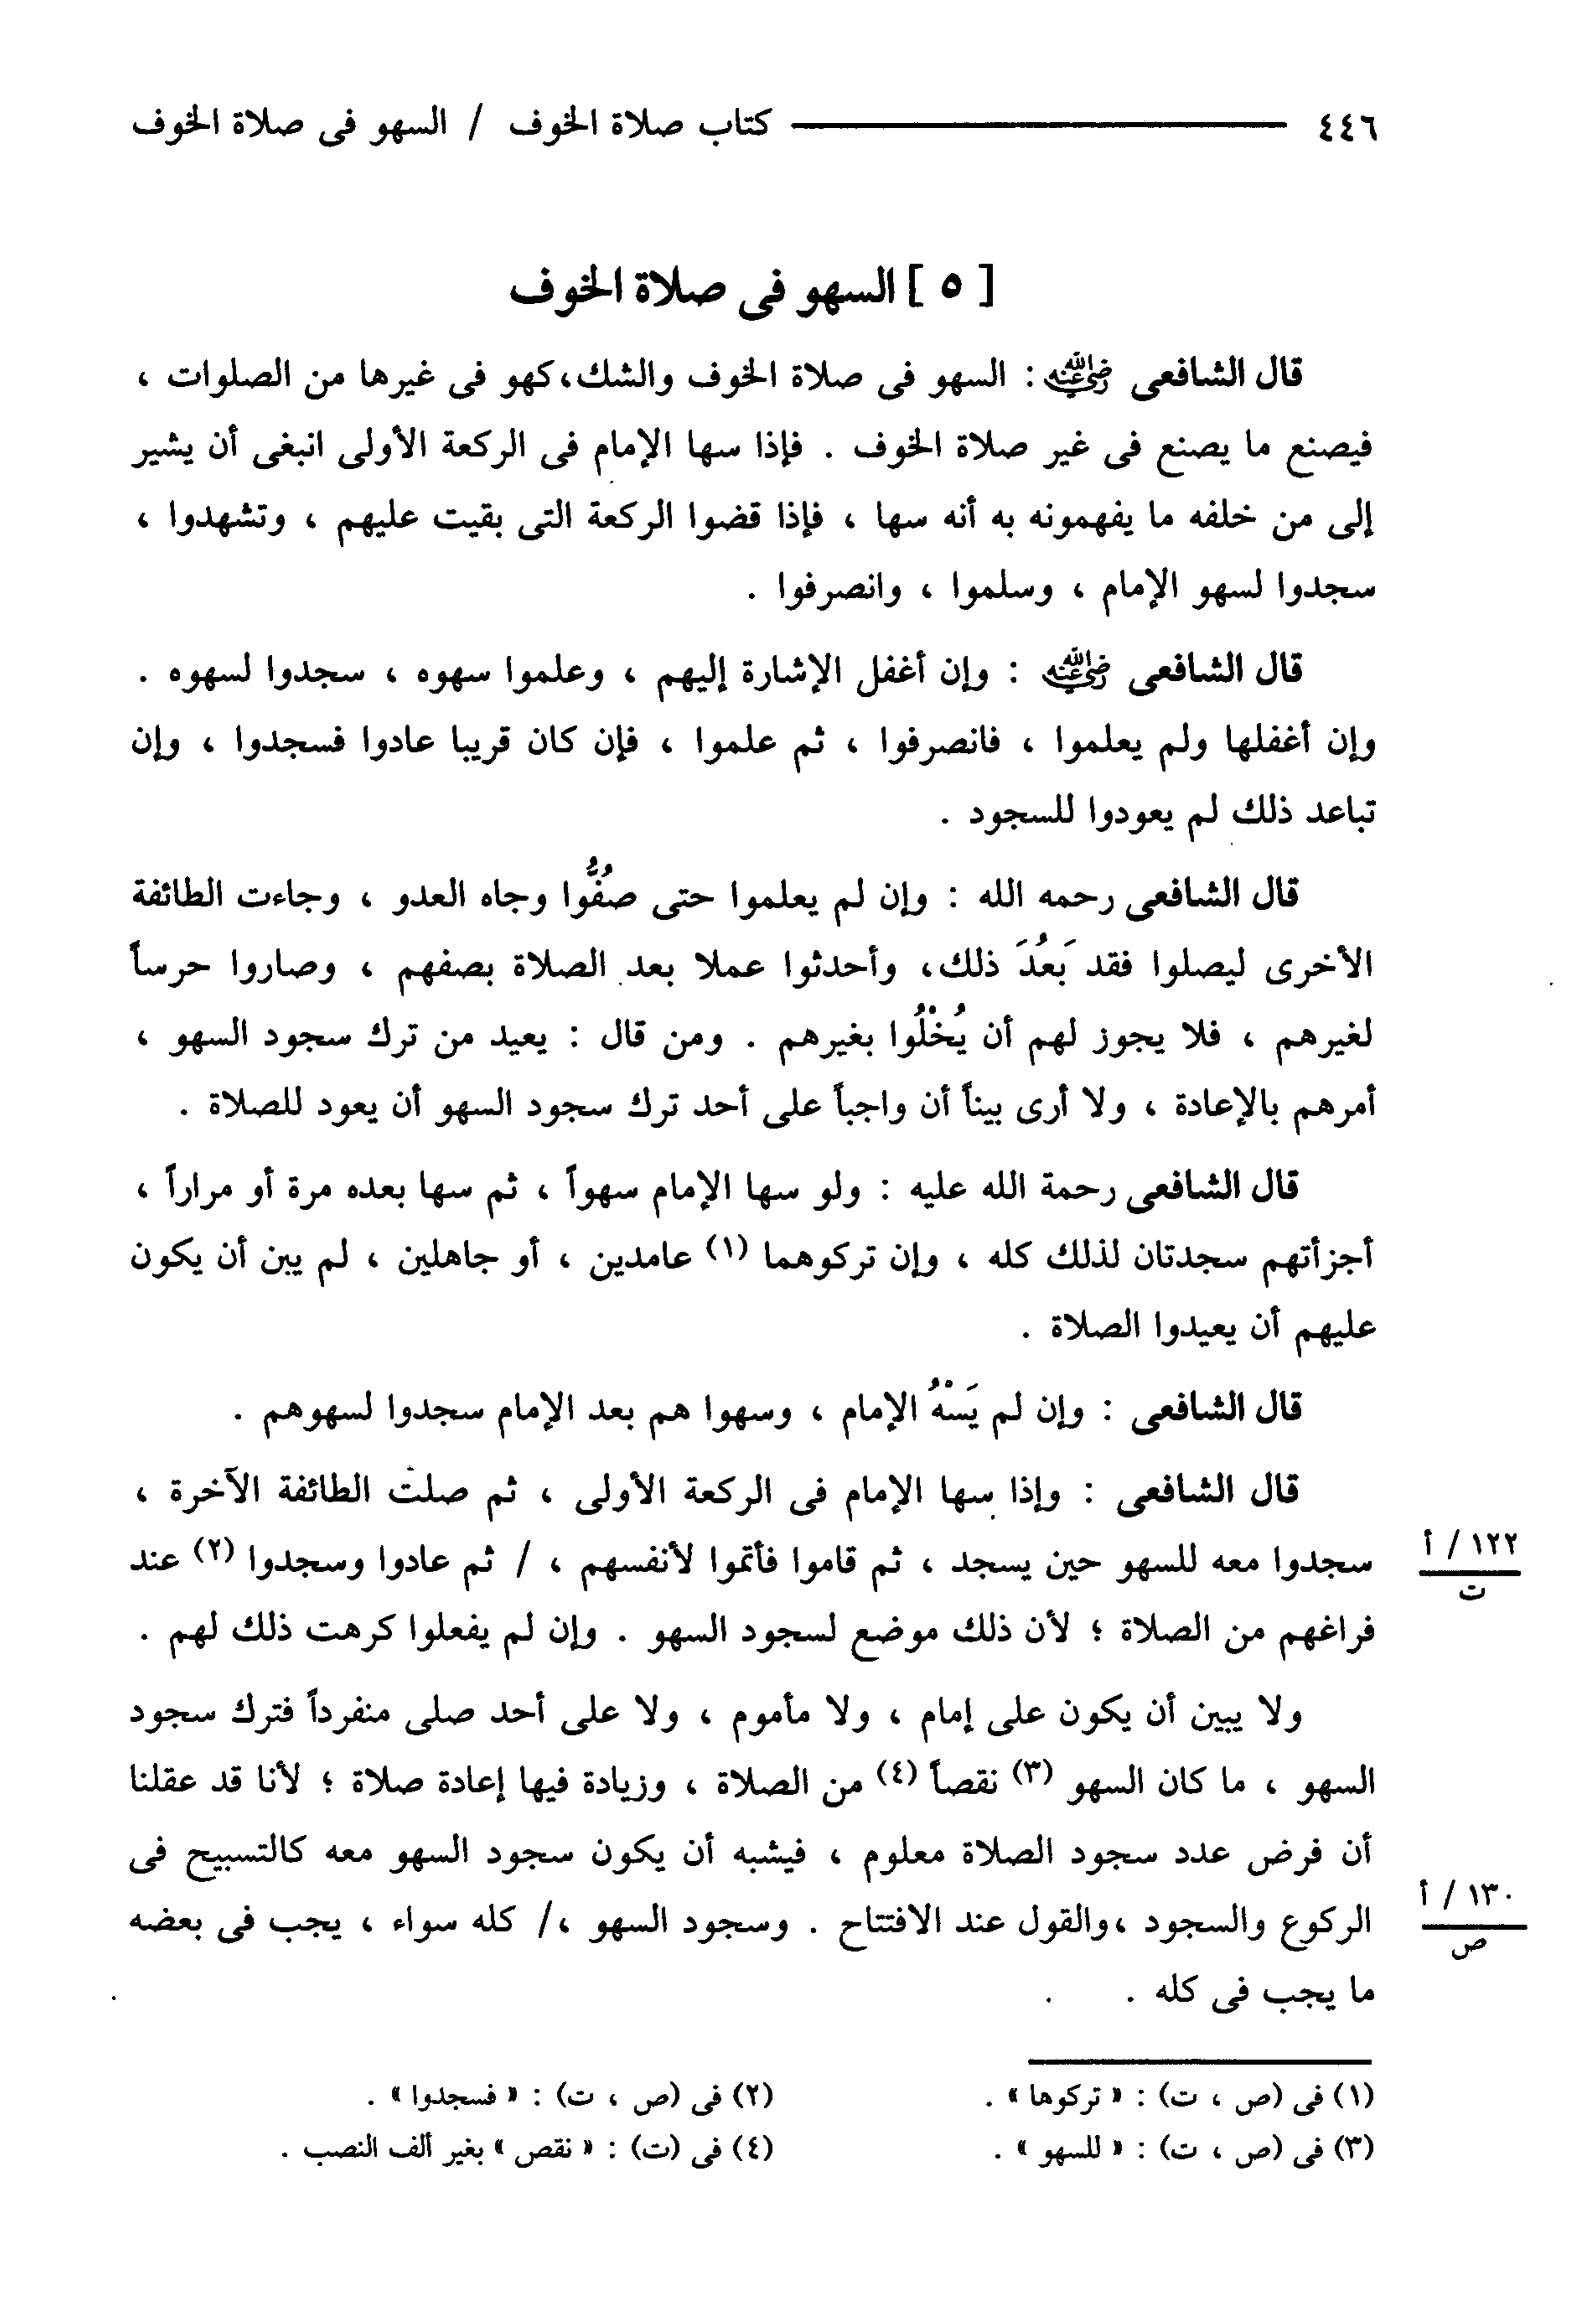 ٤٤٦ كتاب صلاة الخوف / السهو فى صلاة الخوف
[ ٥ ] السهو فى صلاة الخوف
قال الشافعى رضي الله عنه : السهو فى صلاة الخوف والشك، كهو فى غيرها من الصلوات ،
فيصنع ما يصنع فى غير صلاة الخوف . فإذا سها الإمام فى الركعة الأولى انبغى أن يشير
إلى من خلفه ما يفهمونه به أنه سها ، فإذا قضوا الركعة التى بقيت عليهم ، وتشهدوا ،
سجدوا لسهو الإمام ، وسلموا ، وانصرفوا .
قال الشافعى رضي الله عنه : وإن أغفل الإشارة إليهم ، وعلموا سهوه ، سجدوا لسهوه .
وإن أغفلها ولم يعلموا ، فانصرفوا ، ثم علموا ، فإن كان قريبا عادوا فسجدوا ، وإن
تباعد ذلك لم يعودوا للسجود .
قال الشافعى رحمه الله : وإن لم يعلموا حتى صُفُّوا وجاه العدو ، وجاءت الطائفة
الأخرى ليصلوا فقد بَعُدَ ذلك، وأحدثوا عملا بعد الصلاة بصفهم ، وصاروا حرساً
لغيرهم ، فلا يجوز لهم أن يُخْلُوا بغيرهم . ومن قال : يعيد من ترك سجود السهو ،
أمرهم بالإعادة ، ولا أرى بيناً أن واجباً على أحد ترك سجود السهو أن يعود للصلاة .
قال الشافعى رحمة الله عليه : ولو سها الإمام سهواً ، ثم سها بعده مرة أو مراراً ،
أجزأتهم سجدتان لذلك كله ، وإن تركوهما (١) عامدين ، أو جاهلين ، لم يبن أن يكون
عليهم أن يعيدوا الصلاة .
قال الشافعى : وإن لم يَسْهُ الإمام ، وسهوا هم بعد الإمام سجدوا لسهوهم .
قال الشافعى : وإذا سها الإمام فى الركعة الأولى ، ثم صلت الطائفة الآخرة ،
سجدوا معه للسهو حين يسجد ، ثم قاموا فأتموا لأنفسهم ، / ثم عادوا وسجدوا (٢) عند
١٢٢ / أ
ت
فراغهم من الصلاة ؛ لأن ذلك موضع لسجود السهو . وإن لم يفعلوا كرهت ذلك لهم .
ولا يبين أن يكون على إمام ، ولا مأموم ، ولا على أحد صلى منفرداً فترك سجود
السهو ، ما كان السهو (٣) نقصاً (٤) من الصلاة ، وزيادة فيها إعادة صلاة ؛ لأنا قد عقلنا
أن فرض عدد سجود الصلاة معلوم ، فيشبه أن يكون سجود السهو معه كالتسبيح فى
الركوع والسجود ،والقول عند الافتتاح . وسجود السهو ،/ كله سواء ، يجب فى بعضه
١٣٠ / أ
ص
ما يجب فى كله .
(١) فى (ص ، ت) : « تركوها » . (٢) فى (ص ، ت) : « فسجدوا » .
(٣) فى (ص ، ت) : « للسهو » . (٤) فى (ت) : « نقص » بغير ألف النصب .